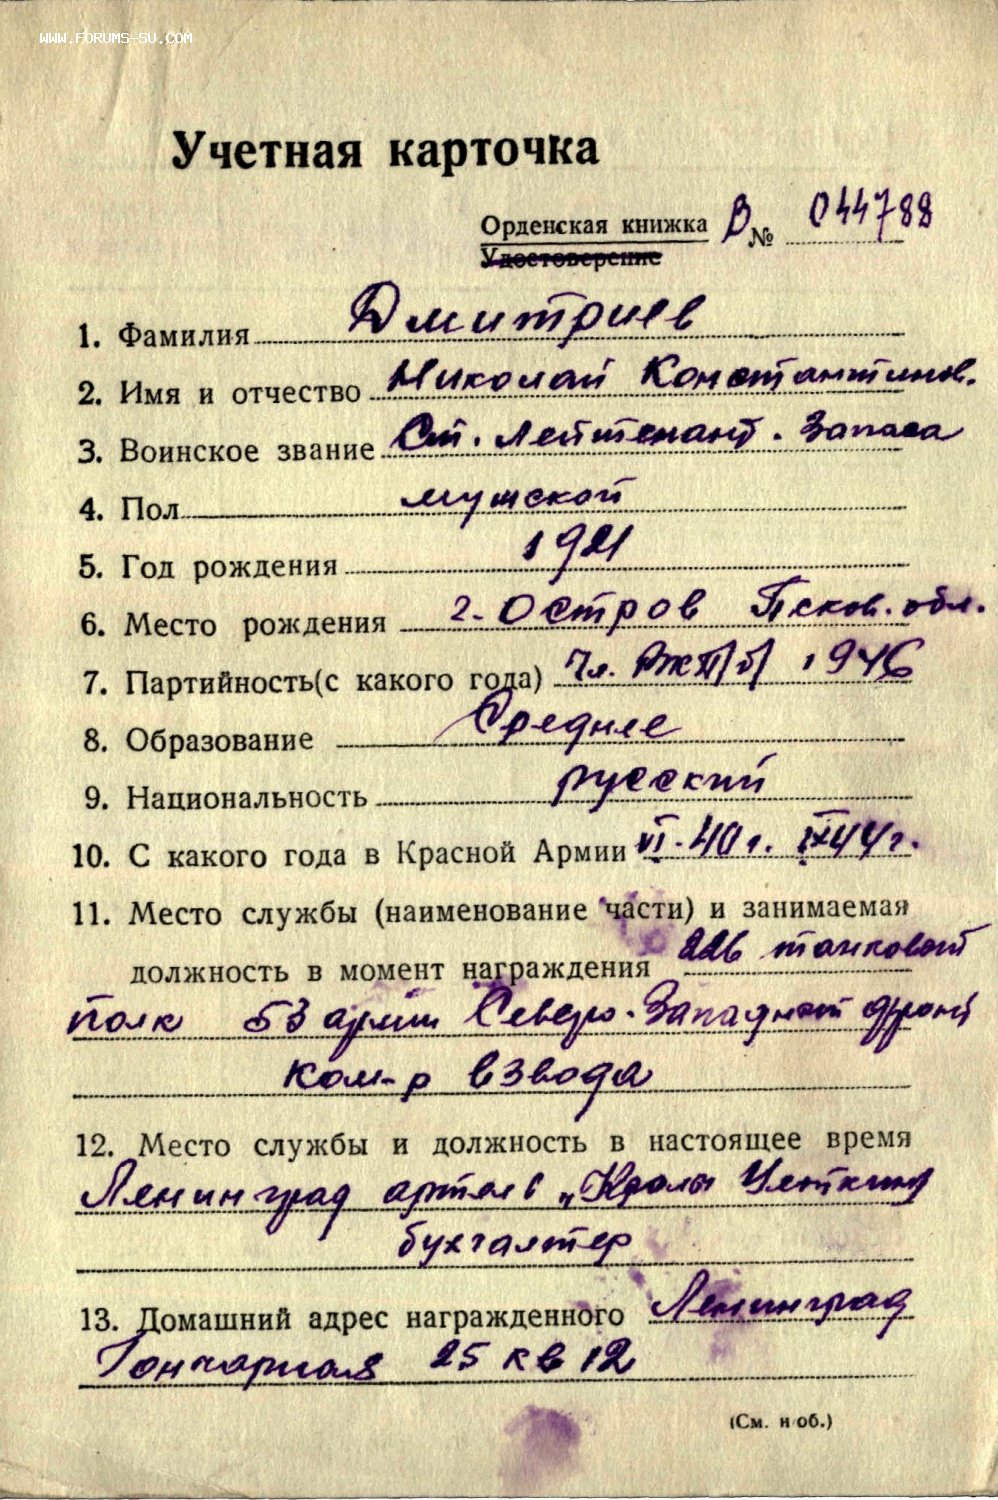 WWW.FORUMS-SU.COM
Учетная карточка
Орденская книжка В № 044788
Удостоверение
1. Фамилия Дмитриев
2. Имя и отчество Николай Константинов.
3. Воинское звание Ст. Лейтенант. Запаса
4. Пол мужской
5. Год рождения 1921
6. Место рождения г. Остров Псков. обл.
7. Партийность(с какого года) Чл. ВКП/б/ 1946
8. Образование Среднее
9. Национальность русский
10. С какого года в Красной Армии VI. 40 г. IX 44 г.
11. Место службы (наименование части) и занимаемая
должность в момент награждения 226 танковой
полк 53 армии Северо-Западной фронт
ком-р взвода
12. Место службы и должность в настоящее время
Ленинград артель „Клары Цеткин"
бухгалтер
13. Домашний адрес награжденного Ленинград
Гончарная 25 кв 12
(См. н об.)